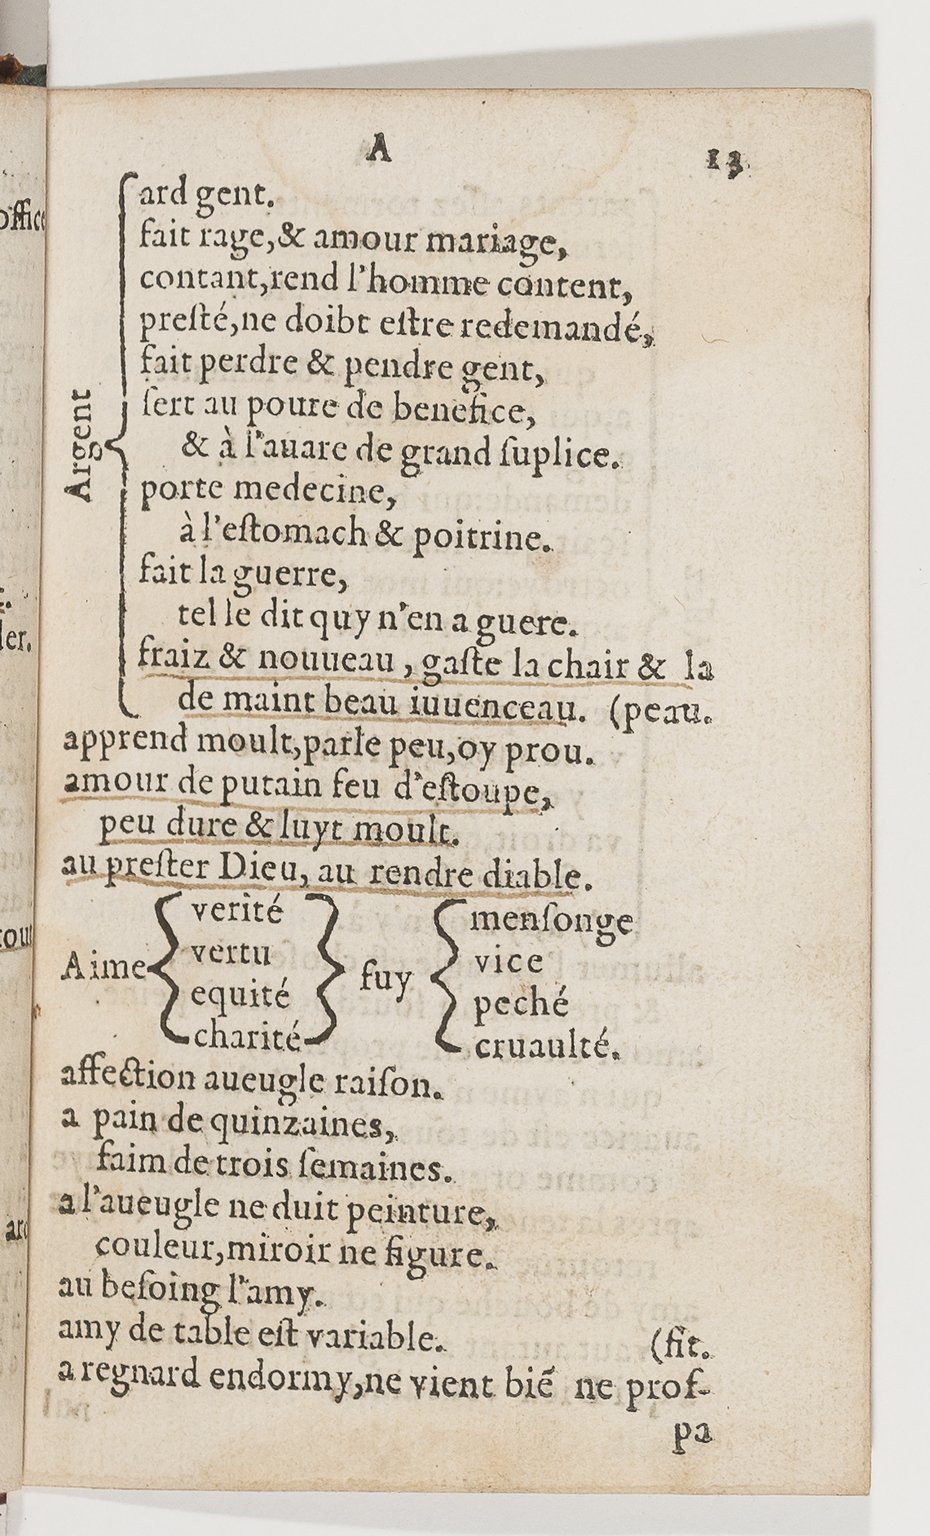 A 13
ard gent.
fait rage,& amour mariage,
contant,rend l'homme content,
preſté,ne doibt eſtre redemandé,
fait perdre & pendre gent,
ſert au poure de benefice,
& à l'auare de grand ſuplice.
Argent
porte medecine,
à l'eſtomach & poitrine.
fait la guerre,
tel le dit quy n'en a guere.
fraiz & nouueau , gaſte la chair & la
de maint beau iuuenceau. (peau.
apprend moult,parle peu,oy prou.
amour de putain feu d'eſtoupe,
peu dure & luyt moult.
au preſter Dieu, au rendre diable.
verité menſonge
vertu vice
Aime fuy
equité peché
charité cruaulté.
affection aueugle raiſon.
a pain de quinzaines,
faim de trois ſemaines.
a l'aueugle ne duit peinture,
couleur,miroir ne figure.
au beſoing l'amy.
amy de table eſt variable. (fit.
a regnard endormy,ne vient biẽ ne prof-
pa